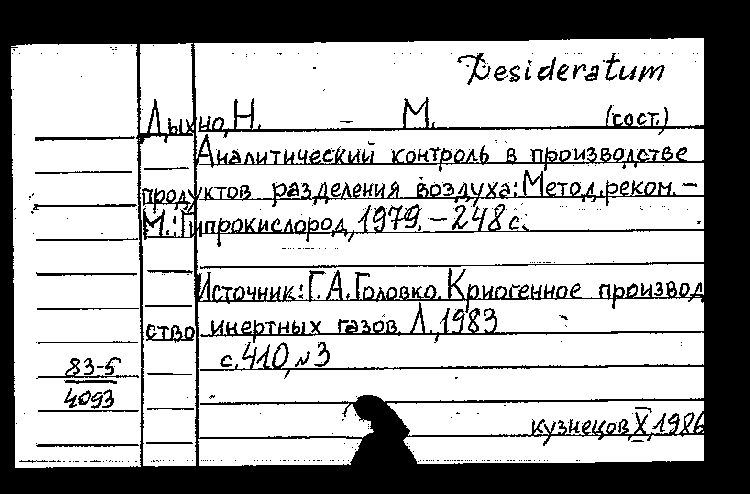 Desideratum
Дыхно, Н. – М. (сост.)
Аналитический контроль в производстве
продуктов разделения воздуха: Метод. реком. –
М.: Гипрокислород, 1979. – 248 с.
Источник: Г. А. Головко. Криогенное производ
ство инертных газов. Л., 1983
с. 410, № 3
83-5
4093
кузнецов, X, 1986